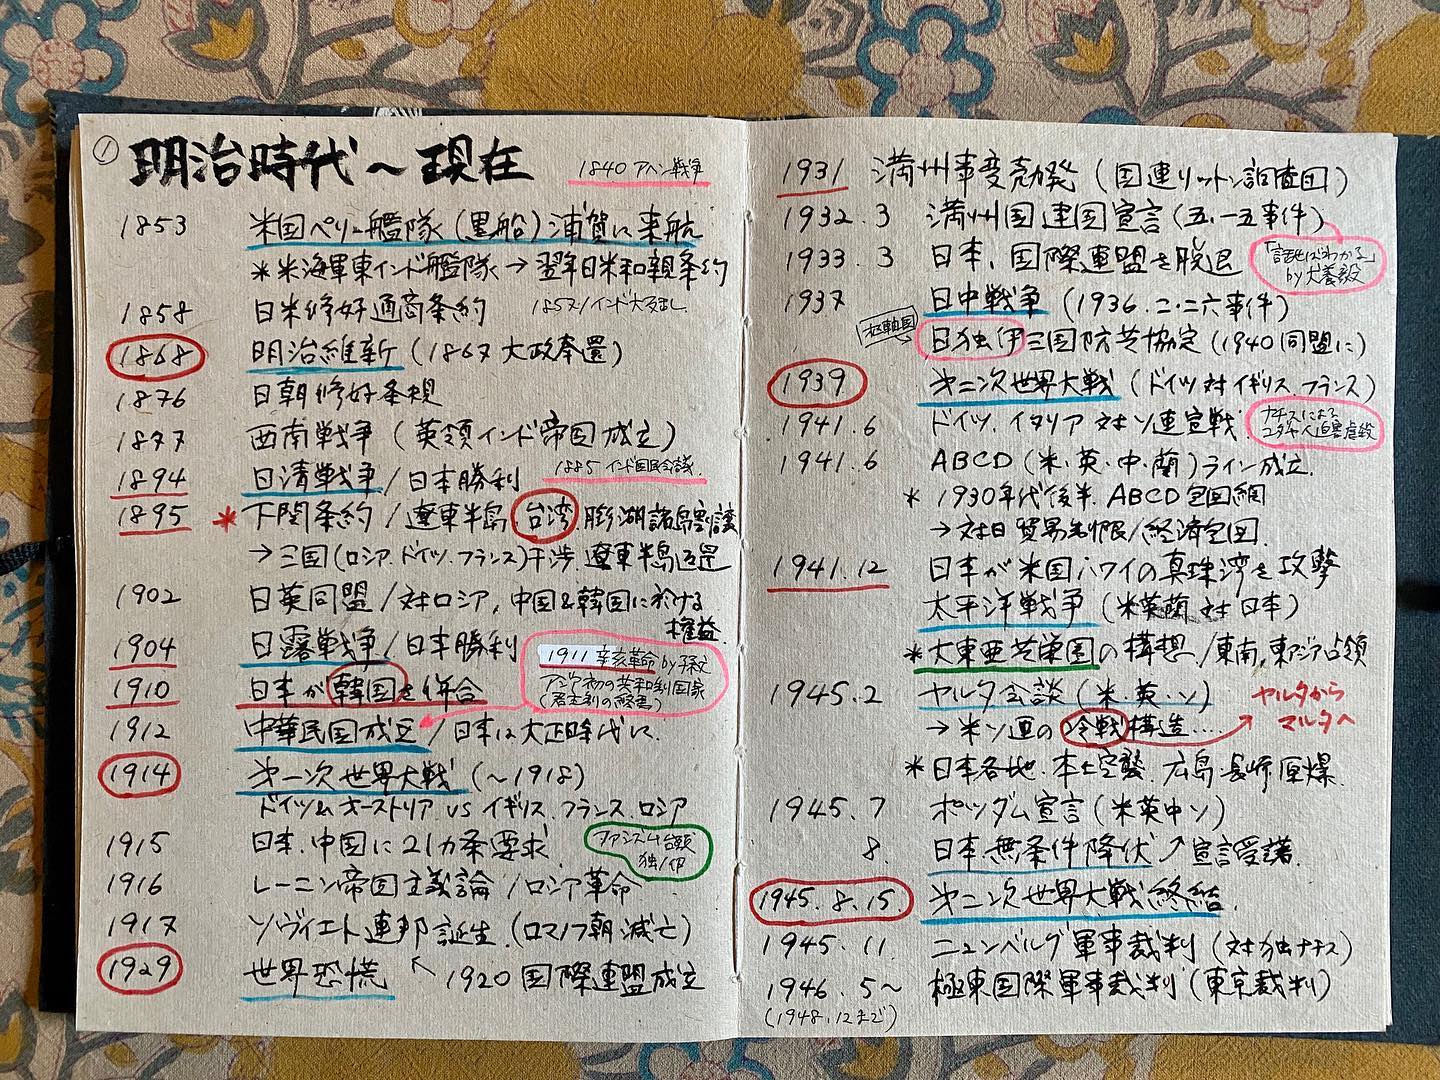 ① 明治時代〜現在
1840 アヘン戦争
1853 米国ペリー艦隊(黒船)浦賀に来航
*米海軍東インド艦隊→翌年日米和親条約
1858 日米修好通商条約 1857/インド大反乱
1868 明治維新(1867 大政奉還)
1876 日朝修好条規
1877 西南戦争(英領インド帝国成立)
1894 日清戦争/日本勝利 1885 インド国民会議
1895 *下関条約/遼東半島.台湾.膨湖諸島割譲
→三国(ロシア.ドイツ.フランス)干渉.遼東半島返還
1902 日英同盟/対ロシア,中国&韓国に於ける
権益.
1904 日露戦争/日本勝利
1911 辛亥革命 by 孫文
アジア初の共和制国家
(君主制の終焉)
1910 日本が韓国を併合
1912 中華民国成立/日本は大正時代に.
1914 第一次世界大戦(〜1918)
ドイツ&オーストリア VS イギリス.フランス.ロシア
1915 日本.中国に21カ条要求.
ファシズム台頭
独/伊
1916 レーニン帝国主義論/ロシア革命
1917 ソヴィエト連邦誕生.(ロマノフ朝滅亡)
1929 世界恐慌 ↖ 1920 国際連盟成立
1931 満州事変勃発(国連リットン調査団)
1932.3 満州国建国宣言(五.一五事件)
1933.3 日本,国際連盟を脱退
「話せばわかる」
by 犬養毅
1937 日中戦争(1936.二.二六事件)
枢軸国
日独伊三国防共協定(1940同盟に)
1939 第二次世界大戦(ドイツ対イギリス.フランス)
1941.6 ドイツ.イタリア対ソ連宣戦.
ナチスによる
ユダヤ人迫害虐殺
1941.6 ABCD(米・英・中・蘭)ライン成立.
*1930年代後半.ABCD包囲網
→対日貿易制限/経済包囲.
1941.12 日本が米国ハワイの真珠湾を攻撃
太平洋戦争(米英蘭対日本)
*大東亜共栄圏の構想/東南,東アジア占領
1945.2 ヤルタ会談(米・英・ソ)
ヤルタから
マルタへ
→米ソ連の冷戦構造.....
*日本各地.本土空襲.広島長崎原爆
1945.7 ポツダム宣言(米英中ソ)
8. 日本無条件降伏↗宣言受諾.
1945.8.15. 第二次世界大戦終結.
1945.11. ニュンベルグ軍事裁判(対独ナチス)
1946.5〜 極東国際軍事裁判(東京裁判)
(1948.12まで)